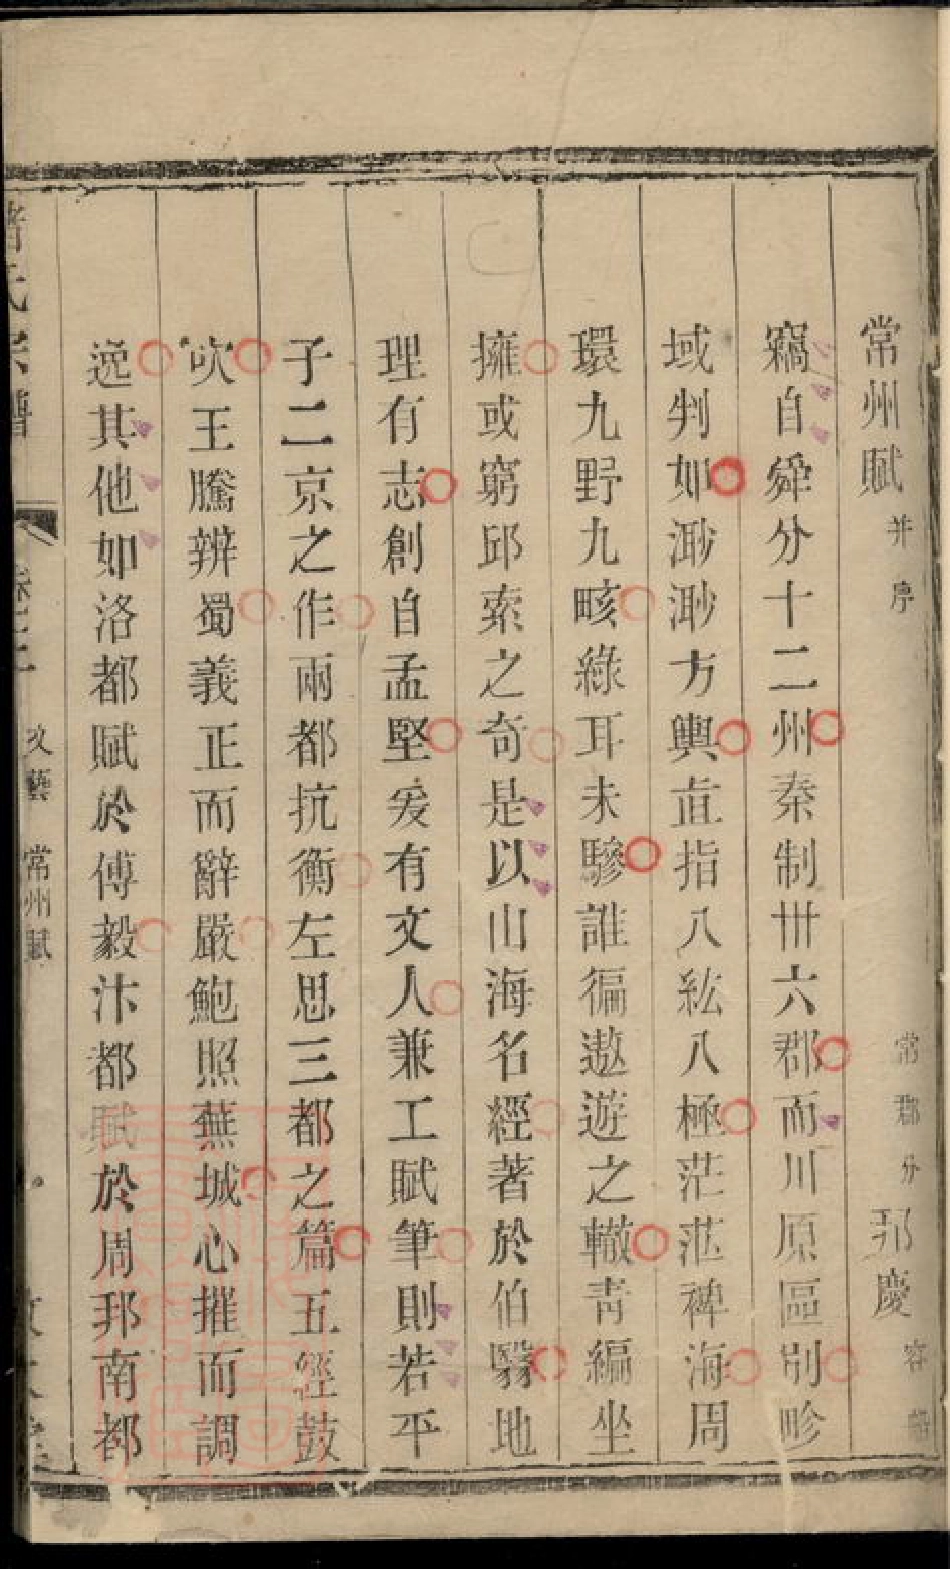 常州賦并序 常郡分邘慶容
竊自舜分十二州秦制卌六郡而川原區別畛
域判如渺渺方輿直指八紘八極茫茫裨海周
環九野九畡綠耳未驂誰徧遨遊之轍青編坐
擁或窮邱索之奇是以山海名經著於伯翳地
理有志創自孟堅爰有文人兼工賦筆則若平
子二京之作兩都抗衡左思三都之篇五經鼓
吹王騰辨蜀義正而辭嚴鮑照蕪城心摧而調
逸其他如洛都賦於傅毅汴都賦於周邦南都
褚氏宗譜 卷十二 文藝 常州賦